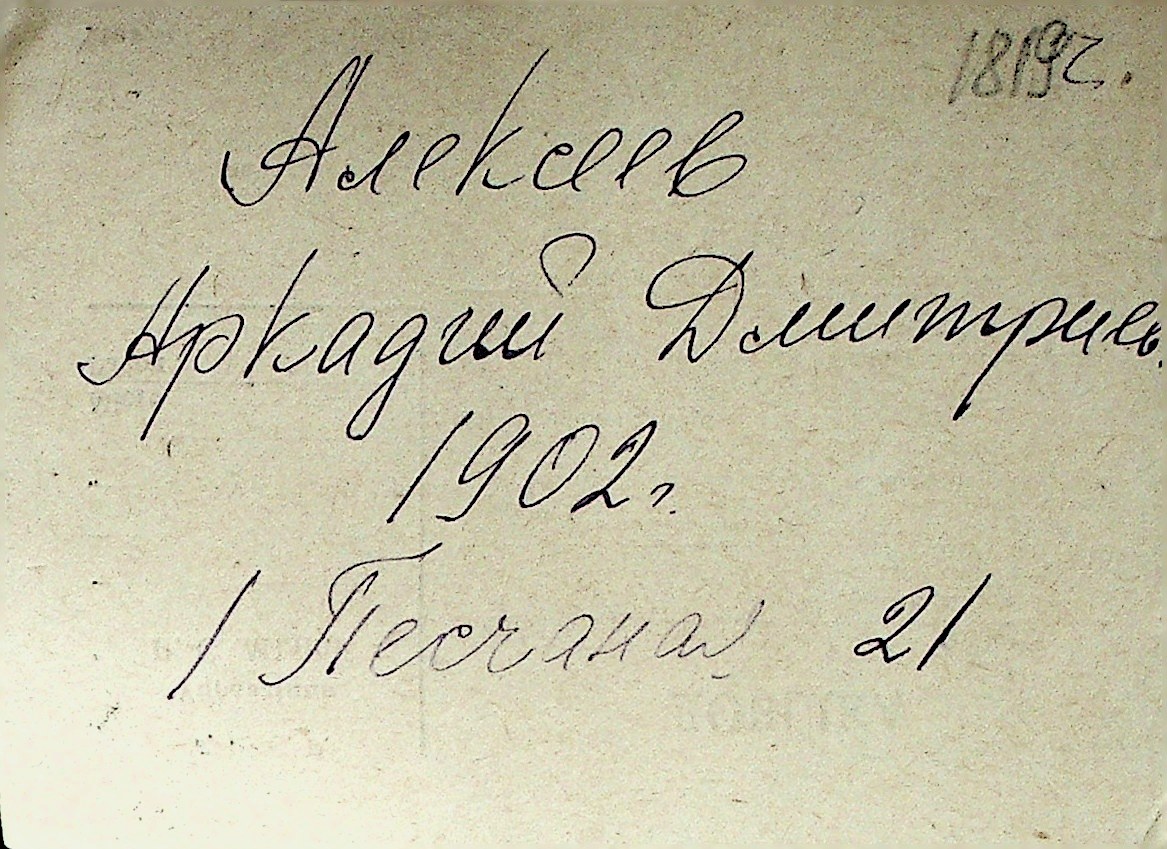 1819г.
Алексеев
Аркадий Дмитриев.
1902г.
1 Песчаная 21